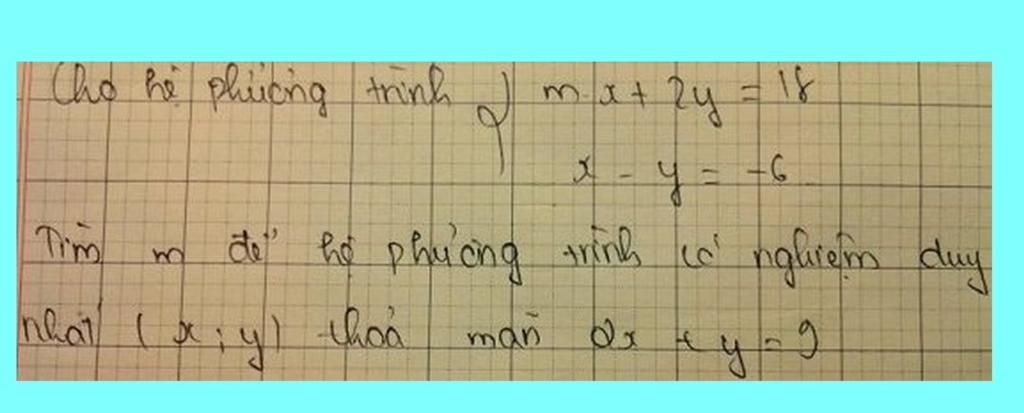 Cho hệ phương trình { m x + 2y = 18
x - y = -6
Tìm m để hệ phương trình có nghiệm duy
nhất ( x ; y ) thoả mãn 2x + y = 9